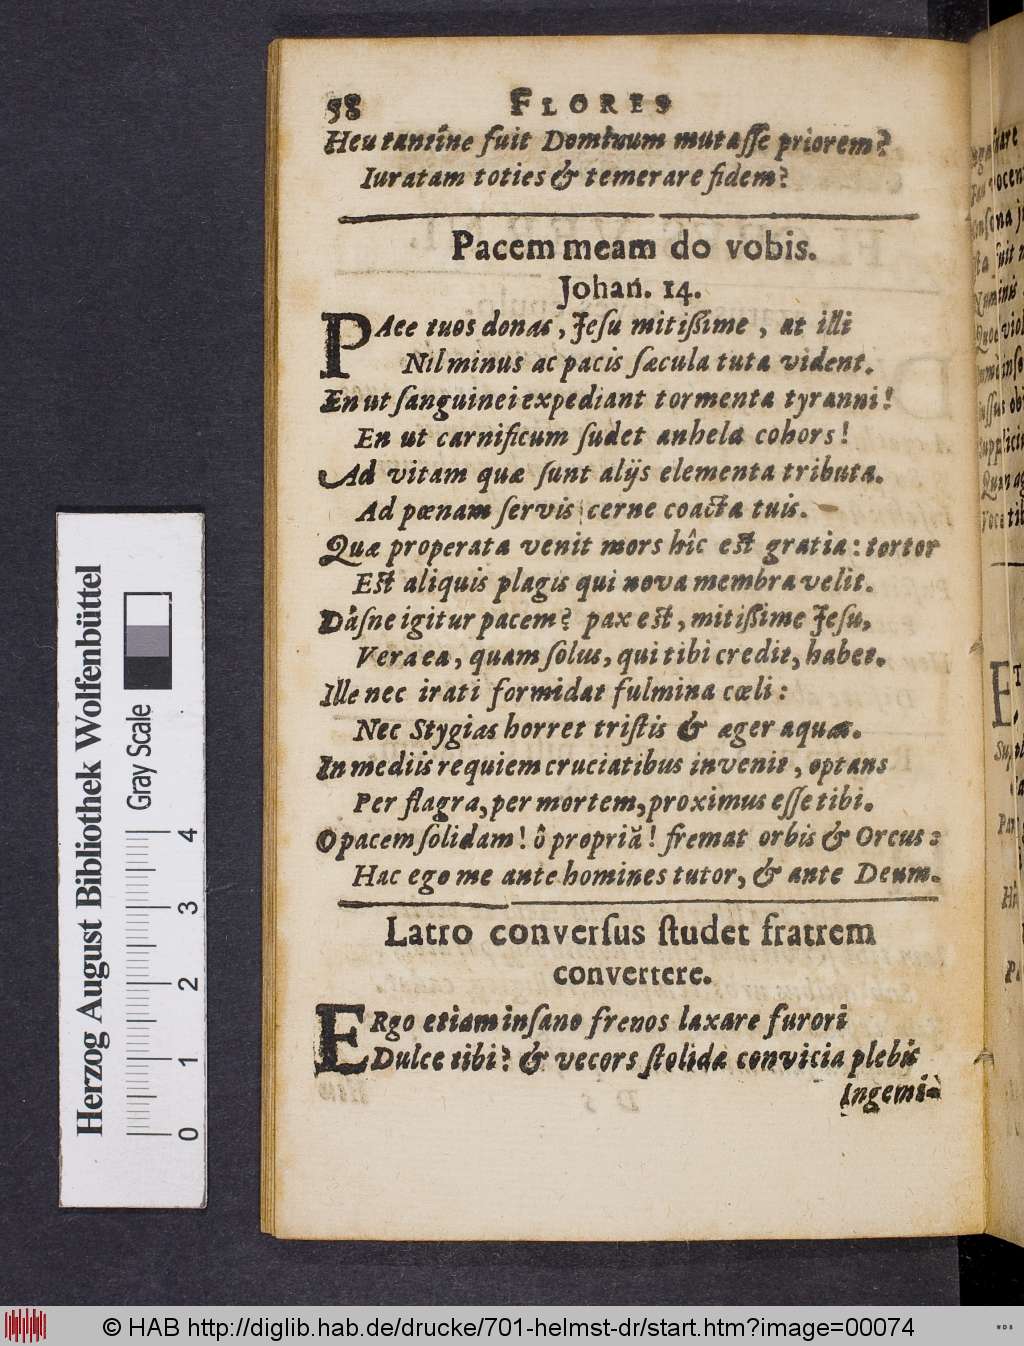 58 FLORES
Heu tantîne fuit Dominum mutaſſe priorem?
Iuratam toties & temerare fidem?
Pacem meam do vobis.
Johan. 14.
PAce tuos donas, Jeſu mitiſſime, at illi
Nil minus ac pacis ſæcula tuta vident.
En ut ſanguinei expediant tormenta tyranni!
En ut carnificum ſudet anhela cohors!
Ad vitam quæ ſunt alijs elementa tributa.
Ad pœnam ſervis cerne coacta tuis.
Quæ properata venit mors hîc est gratia: tortor
Est aliquis plagis qui nova membra velit.
Dáſne igitur pacem? pax est, mitiſſime Jeſu,
Vera ea, quam ſolus, qui tibi credit, habet.
Ille nec irati formidat fulmina cœli:
Nec Stygias horret triſtis & æger aquæ.
In mediis requiem cruciatibus invenit, optans
Per flagra, per mortem, proximus eſſe tibi.
O pacem ſolidam! ô propriã! fremat orbis & Orcus:
Hac ego me ante homines tutor, & ante Deum.
Latro converſus ſtudet fratrem
convertere.
ERgo etiam inſano frenos laxare furori
Dulce tibi? & vecors ſtolida convicia plebis
Ingemi-
Herzog August Bibliothek Wolfenbüttel
Gray Scale
0 1 2 3 4
© HAB http://diglib.hab.de/drucke/701-helmst-dr/start.htm?image=00074